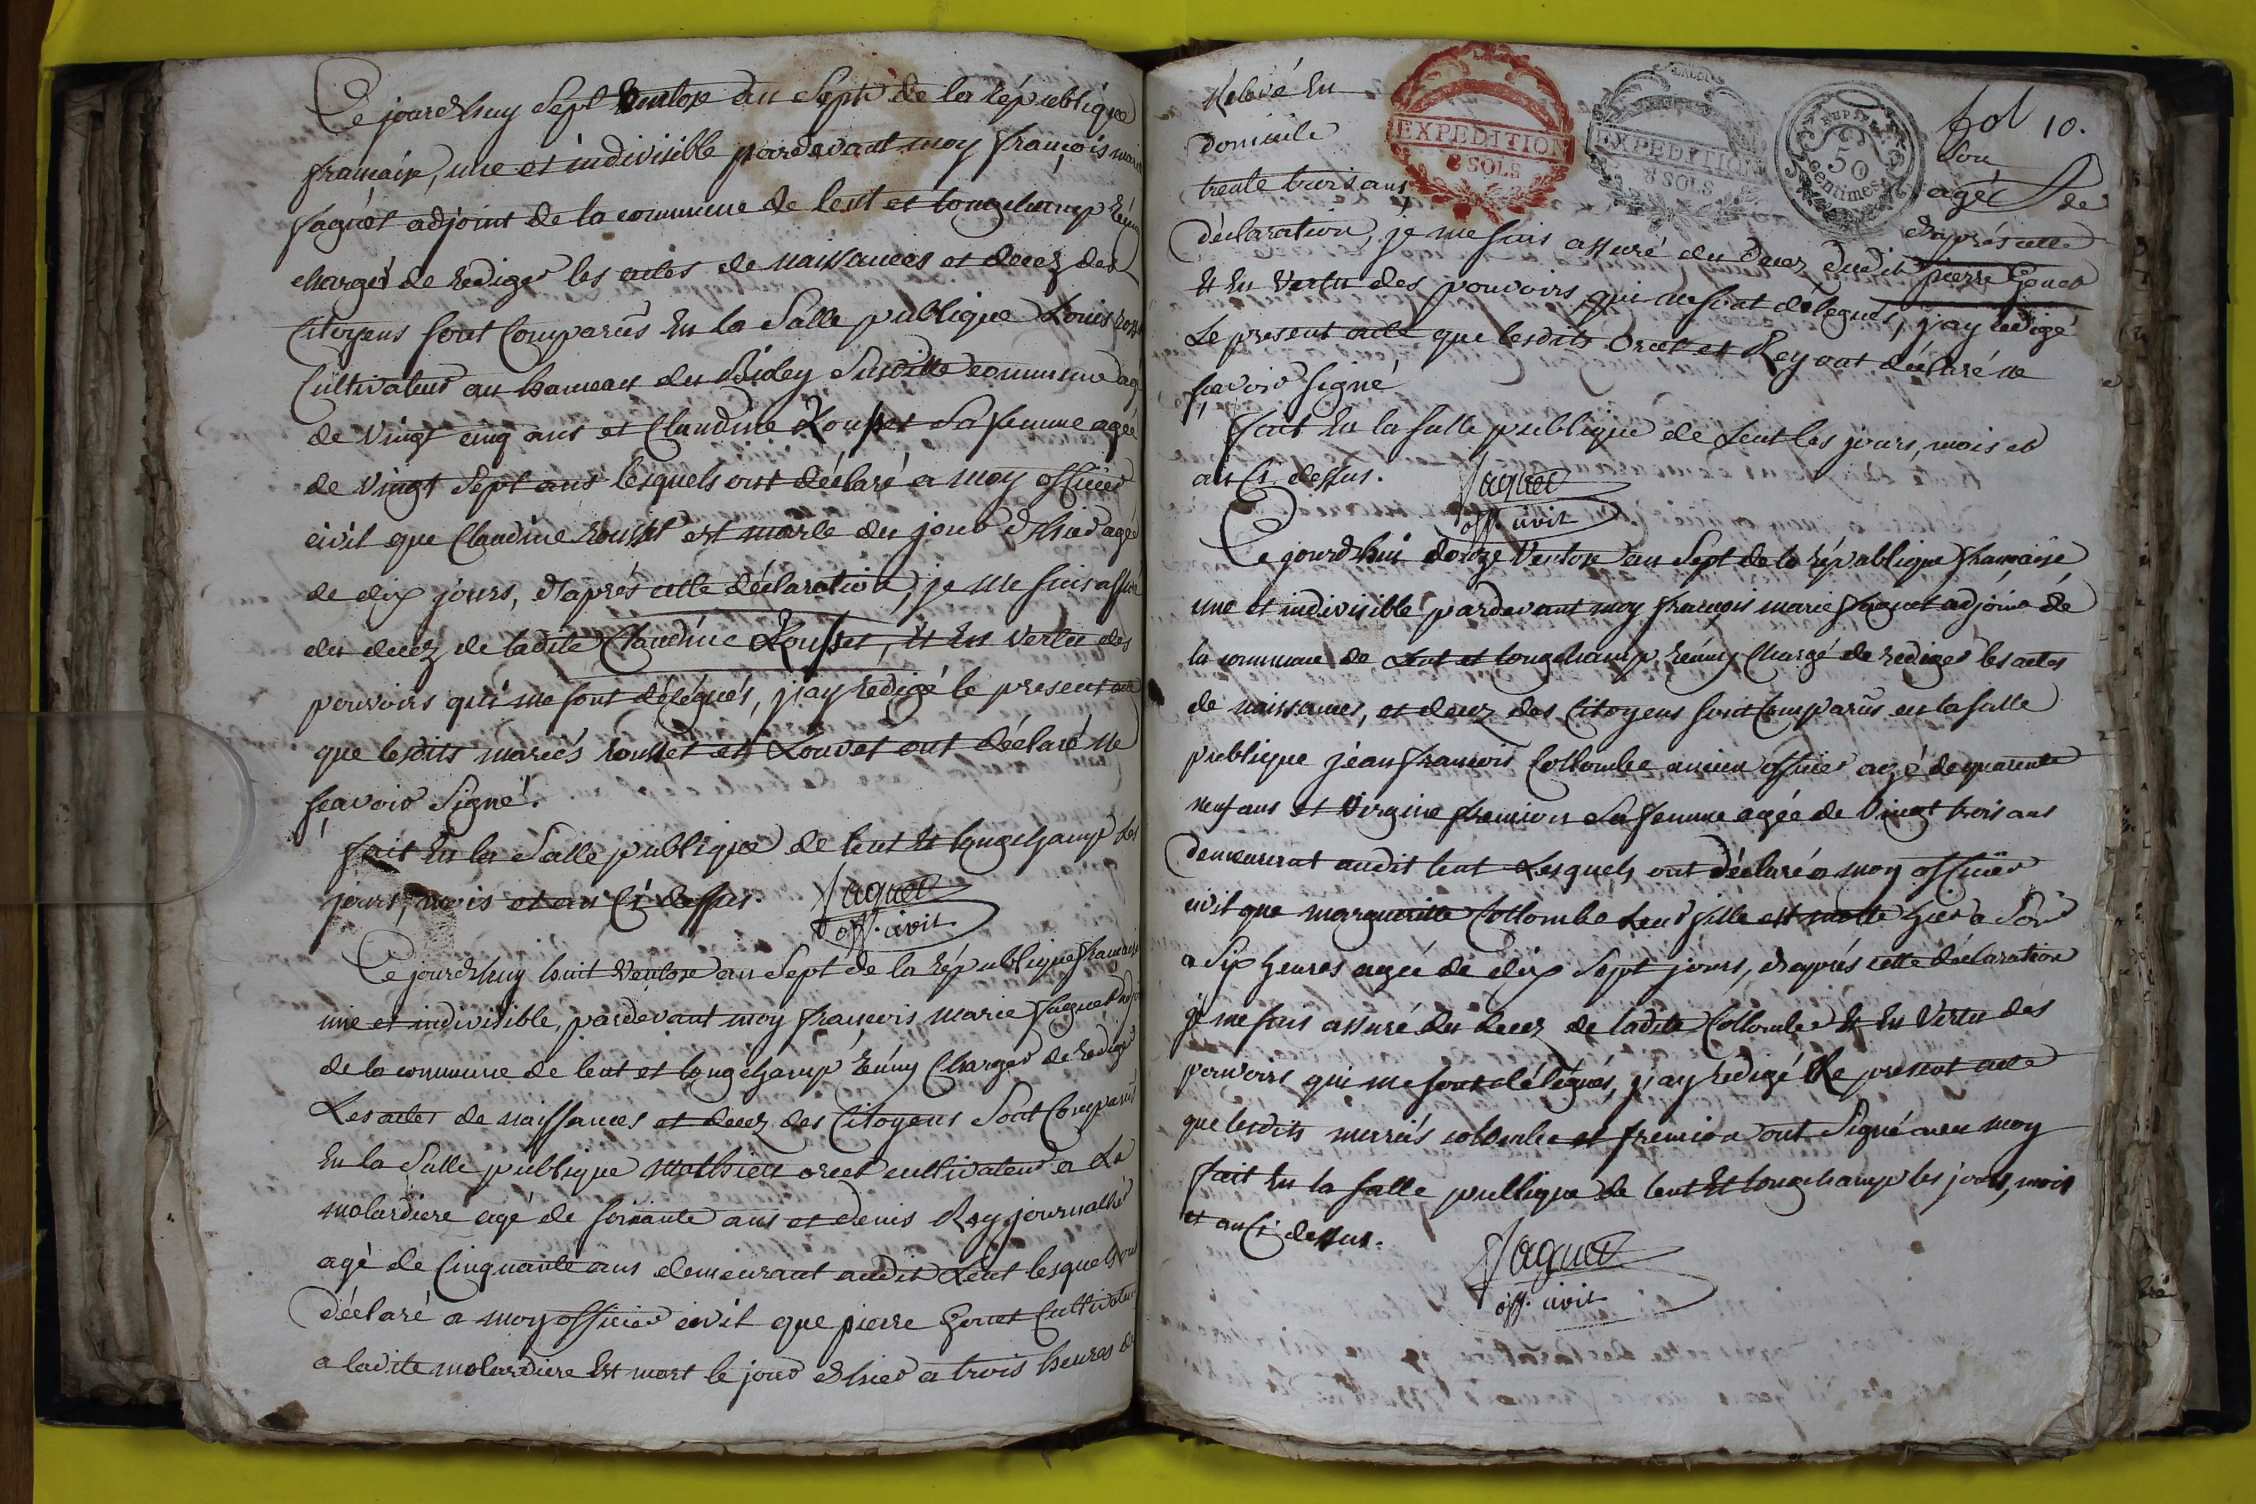 Ce jourdhuy Sept Ventose an Sept de la République
francaise, une et indivisible pardevant moy françois marie
Jaguet adjoint de la commune de lent et longchamp réuny
chargé de rediger les actes de naissances et decez des
Citoyens sont Comparus En la Salle publique Louis
Cultivateur au hameau du Susditte commune agé
de vingt cinq ans et Claudine Rousset Sa femme agée
de vingt Sept ans lesquels ont déclaré a moy officier
civil que Claudine rousset est morte du jour d'hier agée
de dix jours, d'aprés cette déclaration, je me suis assuré
du decez de ladite Claudine Rousset, et En vertu des
pouvoirs qui me sont délégués, j'ay redigé le present acte
que lesdits mariés rousset et Louvet ont déclaré ne
sçavoir Signé.
fait En la Salle publique de lent Et longchamp Les
jours, mois et ans Ci dessus. Jaguet
off. civil
Ce jourdhuy huit Ventose an Sept de la république francaise
une et indivisible, pardevant moy francois marie Jaguet adjoint
de la commune de lent et longchamp réuny Charger de rediger
Les actes de naissances et decez des Citoyens Sont Comparus
En la Salle publique Mathieu oret cultivateur a La
molardiere agé de soixante ans et denis Rey journallié
agé de Cinquante ans demeurant audit Lent lesquels ont
déclaré a moy officier civil que pierre Gonet Cultivateur
a ladite molardiere Est mort le jour d'hier a trois heures de
Relevé En
domicile
trente trois ans,
fol 10.
Son
agé de
d'aprés cette
EXPEDITION
8 SOLS
EXPEDITION
8 SOLS
50
Centimes
déclaration, je me suis assuré du decez dudit pierre Gonet
Et En vertu des pouvoirs qui me sont délégués, j'ay redigé
Le present acte que lesdits Oret et Rey ont déclaré ne
sçavoir Signé
fait En la salle publique de Lent les jours, mois et
an Ci dessus. Jaguet
off. civil
Ce jourdhui douze Ventose an Sept de la république francaise
une et indivisible pardevant moy françois marie Jaguet adjoint de
la commune de Lent et longchamp réuny Chargé de rediger les actes
de naissances, et decez des Citoyens sont Comparus en la salle
publique jean francois Collombe ancien officier agé de quarente
neuf ans et Virginie fremion Sa femme agée de Vingt trois ans
demeurent audit lent Lesquels ont déclaré a moy officier
civil que marguerite Collombe Leur fille est morte hier a Soir
a Six heures agée de dix Sept jours, d'aprés cette déclaration
je me suis assuré du decez de ladite Collombe Et En Vertu des
pouvoirs qui me sont délégués, j'ay redigé Le present acte
que lesdits mariés colombe et fremion ont Signé avec moy
fait En la salle publique de lent Et longchamp les jours, mois
et an Ci dessus.
Jaguet
off. civil